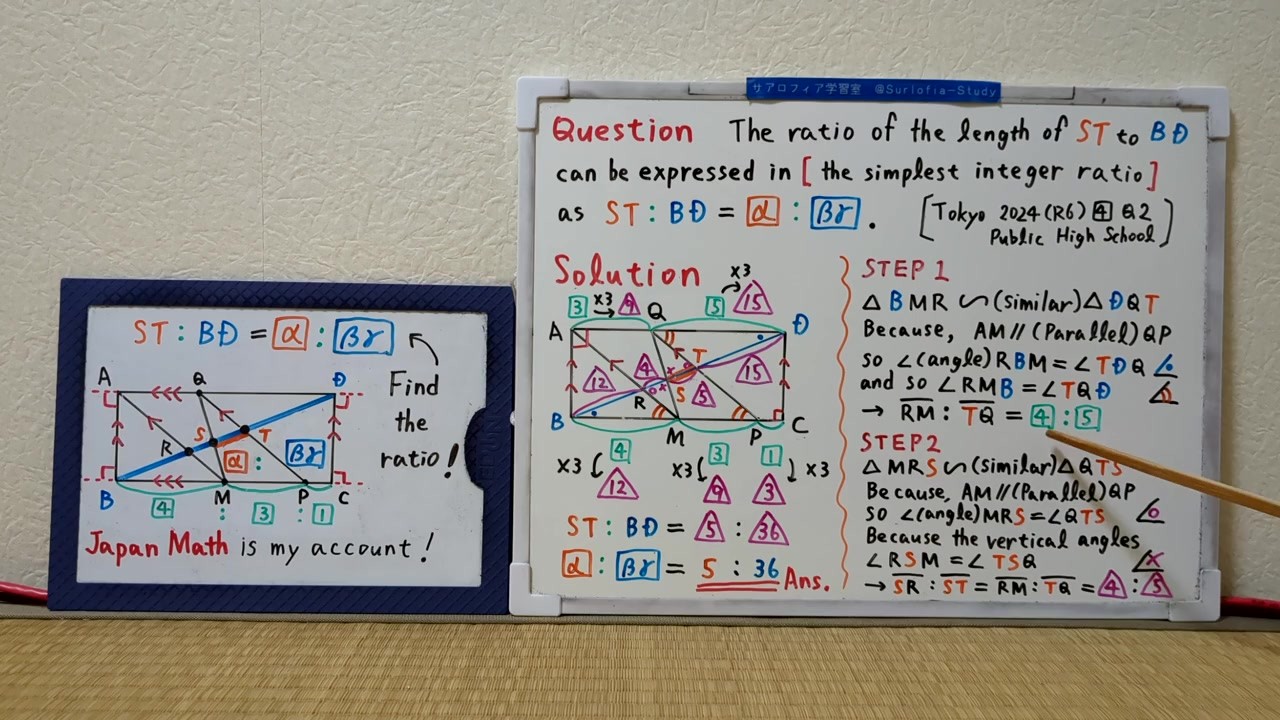 サアロフィア学習室 @Surlofia-Study
Question The ratio of the length of ST to BD
can be expressed in [ the simplest integer ratio ]
as ST : BD = α : βγ .
[ Tokyo 2024 (R6) 4 Q2
Public High School ]
Solution
×3
3 ×3 9 Q 5 15
A D
12 4 T 15
R S 5
B M P C
4 3 1
×3 ×3 ×3
12 9 3
ST : BD = 5 : 36
α : βγ = 5 : 36 Ans.
STEP 1
△BMR ∽ (similar) △DQT
Because, AM // (Parallel) QP
so ∠(angle) RBM = ∠TDQ
and so ∠RMB = ∠TQD
→ RM : TQ = 4 : 5
STEP2
△MRS ∽ (similar) △QTS
Because, AM // (Parallel) QP
so ∠(angle) MRS = ∠QTS
Because the vertical angles
∠RSM = ∠TSQ
→ SR : ST = RM : TQ = 4 : 5
ST : BD = α : βγ
A Q D
R S T
α : βγ
B M P C
4 : 3 : 1
Find
the
ratio !
Japan Math is my account !